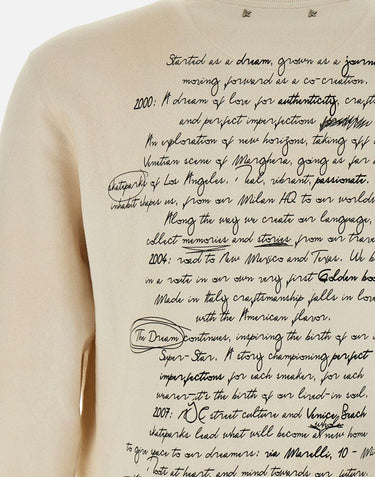 Started as a dream, grown as a journ
moving forward as a co-creation.
2000: A dream of love for authenticity, crafts
and perfect imperfections
An exploration of new horizons, taking off
Venetian scene of Marghera, going as far a
skateparks of Los Angeles. Real, vibrant, passionate.
inhabit shapes us, from our Milan HQ to our worlds
Along the way we create our language,
collect memories and stories from our trave
2004: road to New Mexico and Texas. We b
in a route in our own very first Golden boo
Made in Italy craftsmanship falls in lov
with the American flavor.
The Dream continues, inspiring the birth of our
Super-Star. A story championing perfect
imperfections for each sneaker, for each
wearer-it's the birth of our lived-in soul.
2007: NYC street culture and Venice Beach
skateparks lead what will become a new home
to give space to our dreamers: via Morelli, 10 - M
at heart, and mind towards our future.